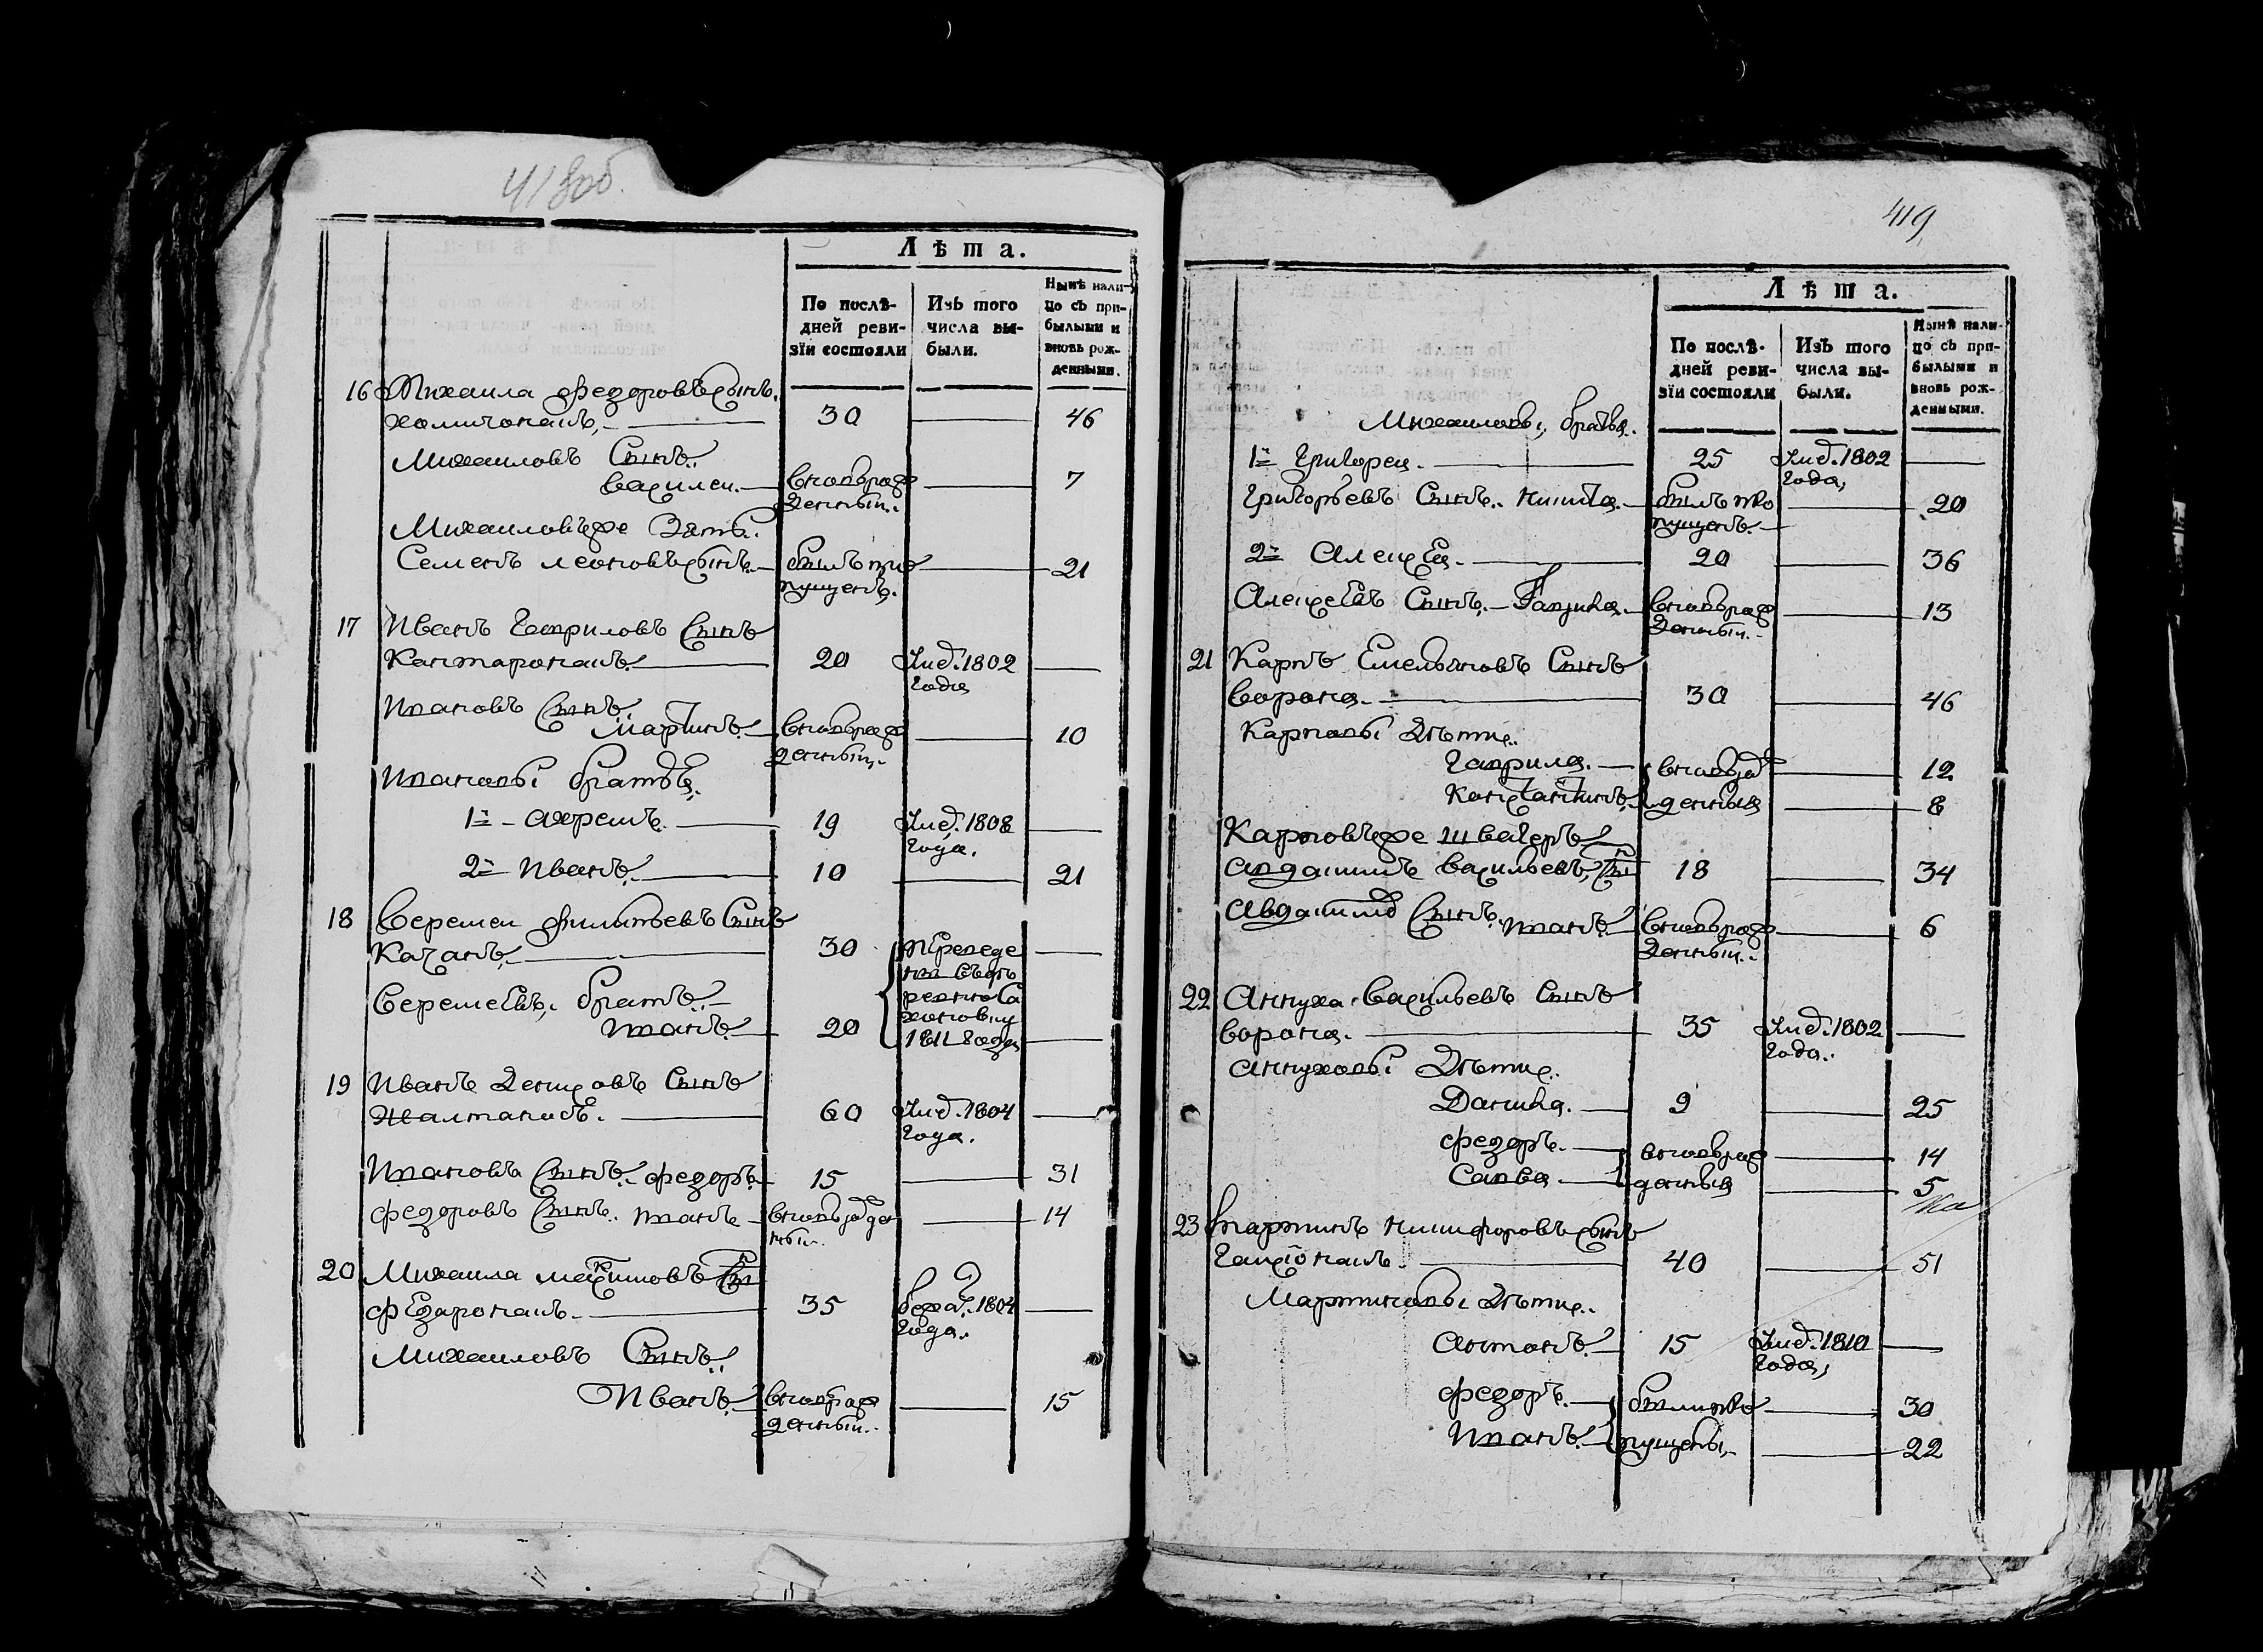 418об.
Лѣта.
По послѣ-
дней реви-
зїи состояли
Изъ того
числа вы-
были.
Нынѣ нали-
цо съ при-
былыми и
вновь рож-
денными.
16 Михаила федоровъ сынъ.
30 46
Михаиловъ Сынъ.
василеи. вновьрож 7
денныи.
Михаиловъже Зять.
Семенъ леоновъ сынъ. былъ про 21
пущенъ.
17 Иванъ Гавриловъ Сынъ
20 Умѣ. 1802
года
Ивановъ Сынъ.
мартинъ. вновьрож 10
денныи.
Ивановы братья.
1й ахремъ. 19 Умѣ. 1808
года.
2й Иванъ. 10 21
18 Веремеи филипьевъ Сынъ
Качанъ. 30
Веремеевъ, братъ.
иванъ. 20
1811 года
19 Иванъ Денисовъ Сынъ
60 Умѣ. 1804
года.
Ивановъ Сынъ. федоръ 15 31
федоровъ Сынъ. иванъ вновьрожде 14
нныи.
20 Михаила
35 бежа. 1804
года.
Михаиловъ Сынъ.
Иванъ. вновьрож 15
денныи.
419
Лѣта.
По послѣ-
дней реви-
зїи состояли
Изъ того
числа вы-
были.
Нынѣ нали-
цо съ при-
былыми и
вновь рож-
денными.
Михаиловы, братья.
1й Григореи. 25 Умѣ. 1802
года,
Григорьевъ Сынъ. никита. былъ про 20
пущенъ.
2й Алексеи. 20 36
Алексеевъ Сынъ. вновьрож 13
денныи.
21 Карпъ Емельяновъ Сынъ
ворона. 30 46
Карповы Дѣти.
Гаврила. вновьрож 12
Константинъ. денныя 8
Карповъже швагеръ
авдакимъ васильевъ, сы 18 34
Сынъ. иванъ. вновьрож 6
денныи.
22 Аннуха васильевъ Сынъ
ворона. 35 Умѣ. 1802
года.
Аннуховы Дѣти.
Данила. 9 25
федоръ. вновьрож 14
Савва денныя 5
23 мартинъ никифоровъ сынъ
40 51
Мартиновы Дѣти.
Антонъ. 15 Умѣ. 1810
года,
федоръ. былипро 30
Иванъ. пущены, 22